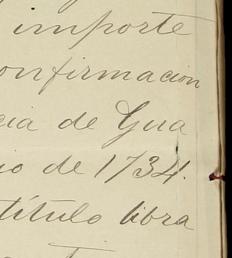 importe
onfirmacion
cia de Gua
io de 1734.
título libra